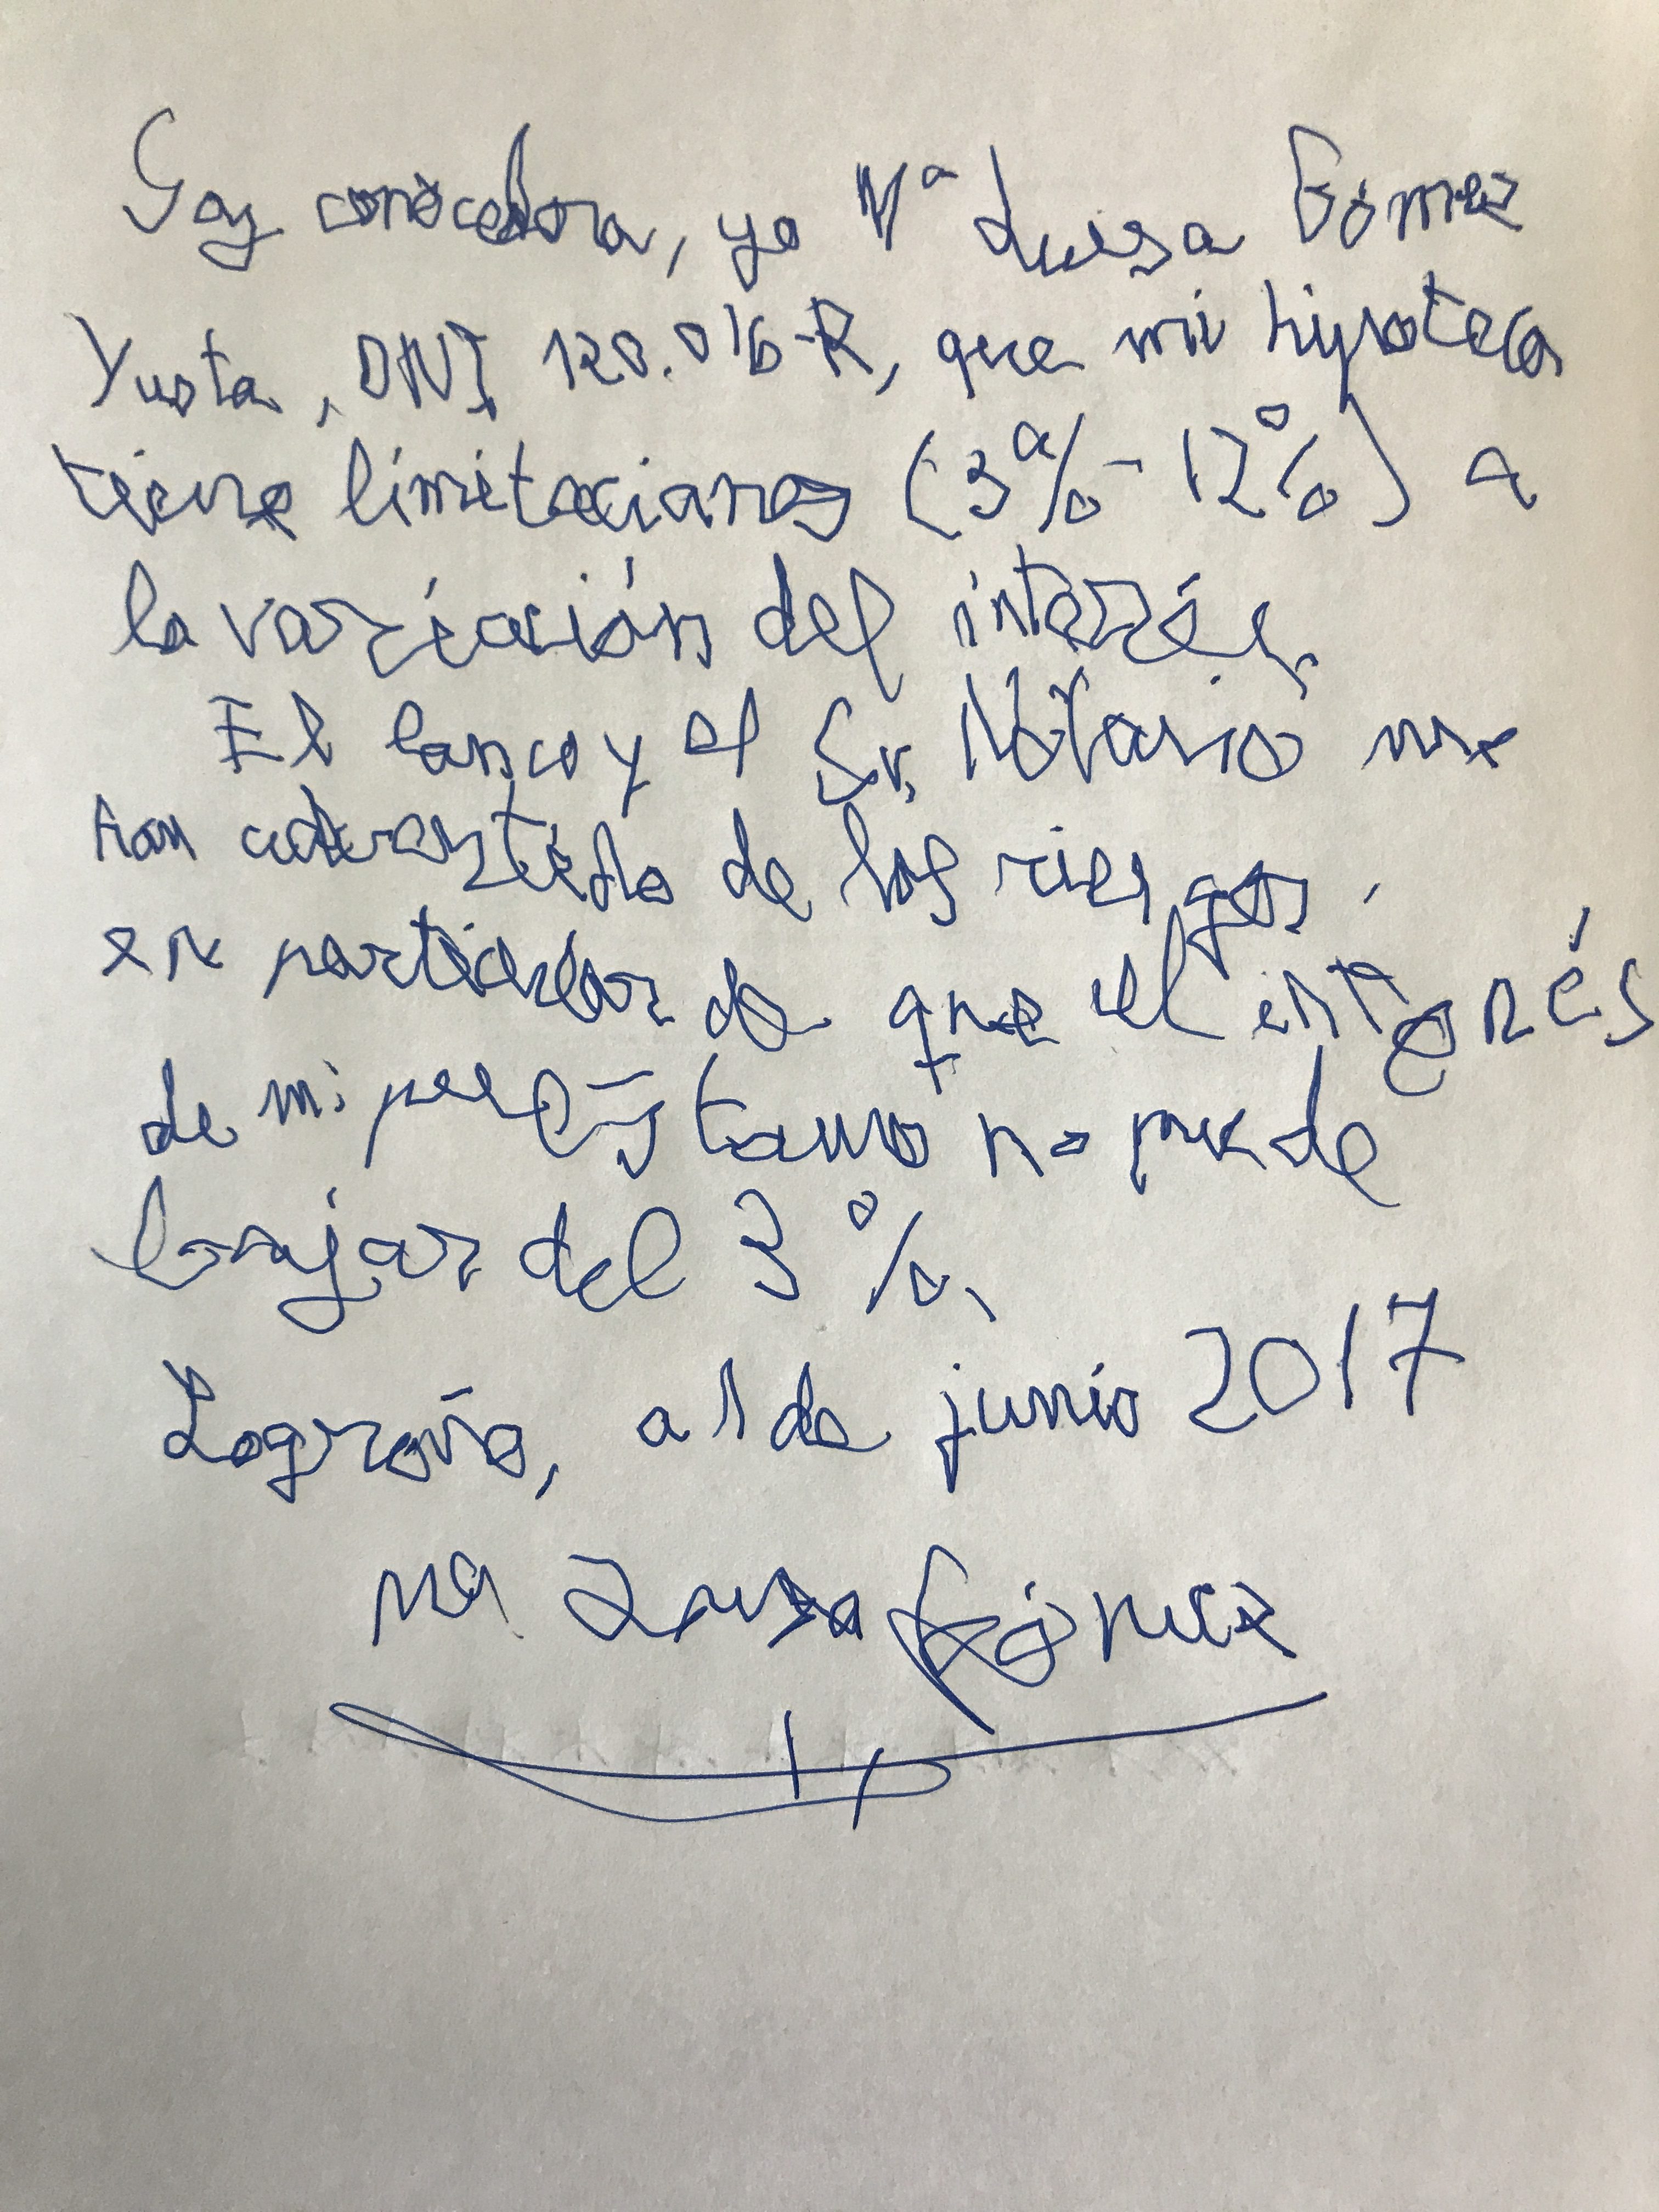 Soy conocedora, yo Mª Luisa Gómez
Yusta, DNI 120.016-R, que mi hipoteca
tiene limitaciones (3% - 12%) a
la variación del interés.
El banco y el Sr. Notario me
han advertido de los riesgos,
en particular de que el interés
de mi préstamo no puede
bajar del 3%.
Logroño, a 1 de junio 2017
Mª Luisa Gómez